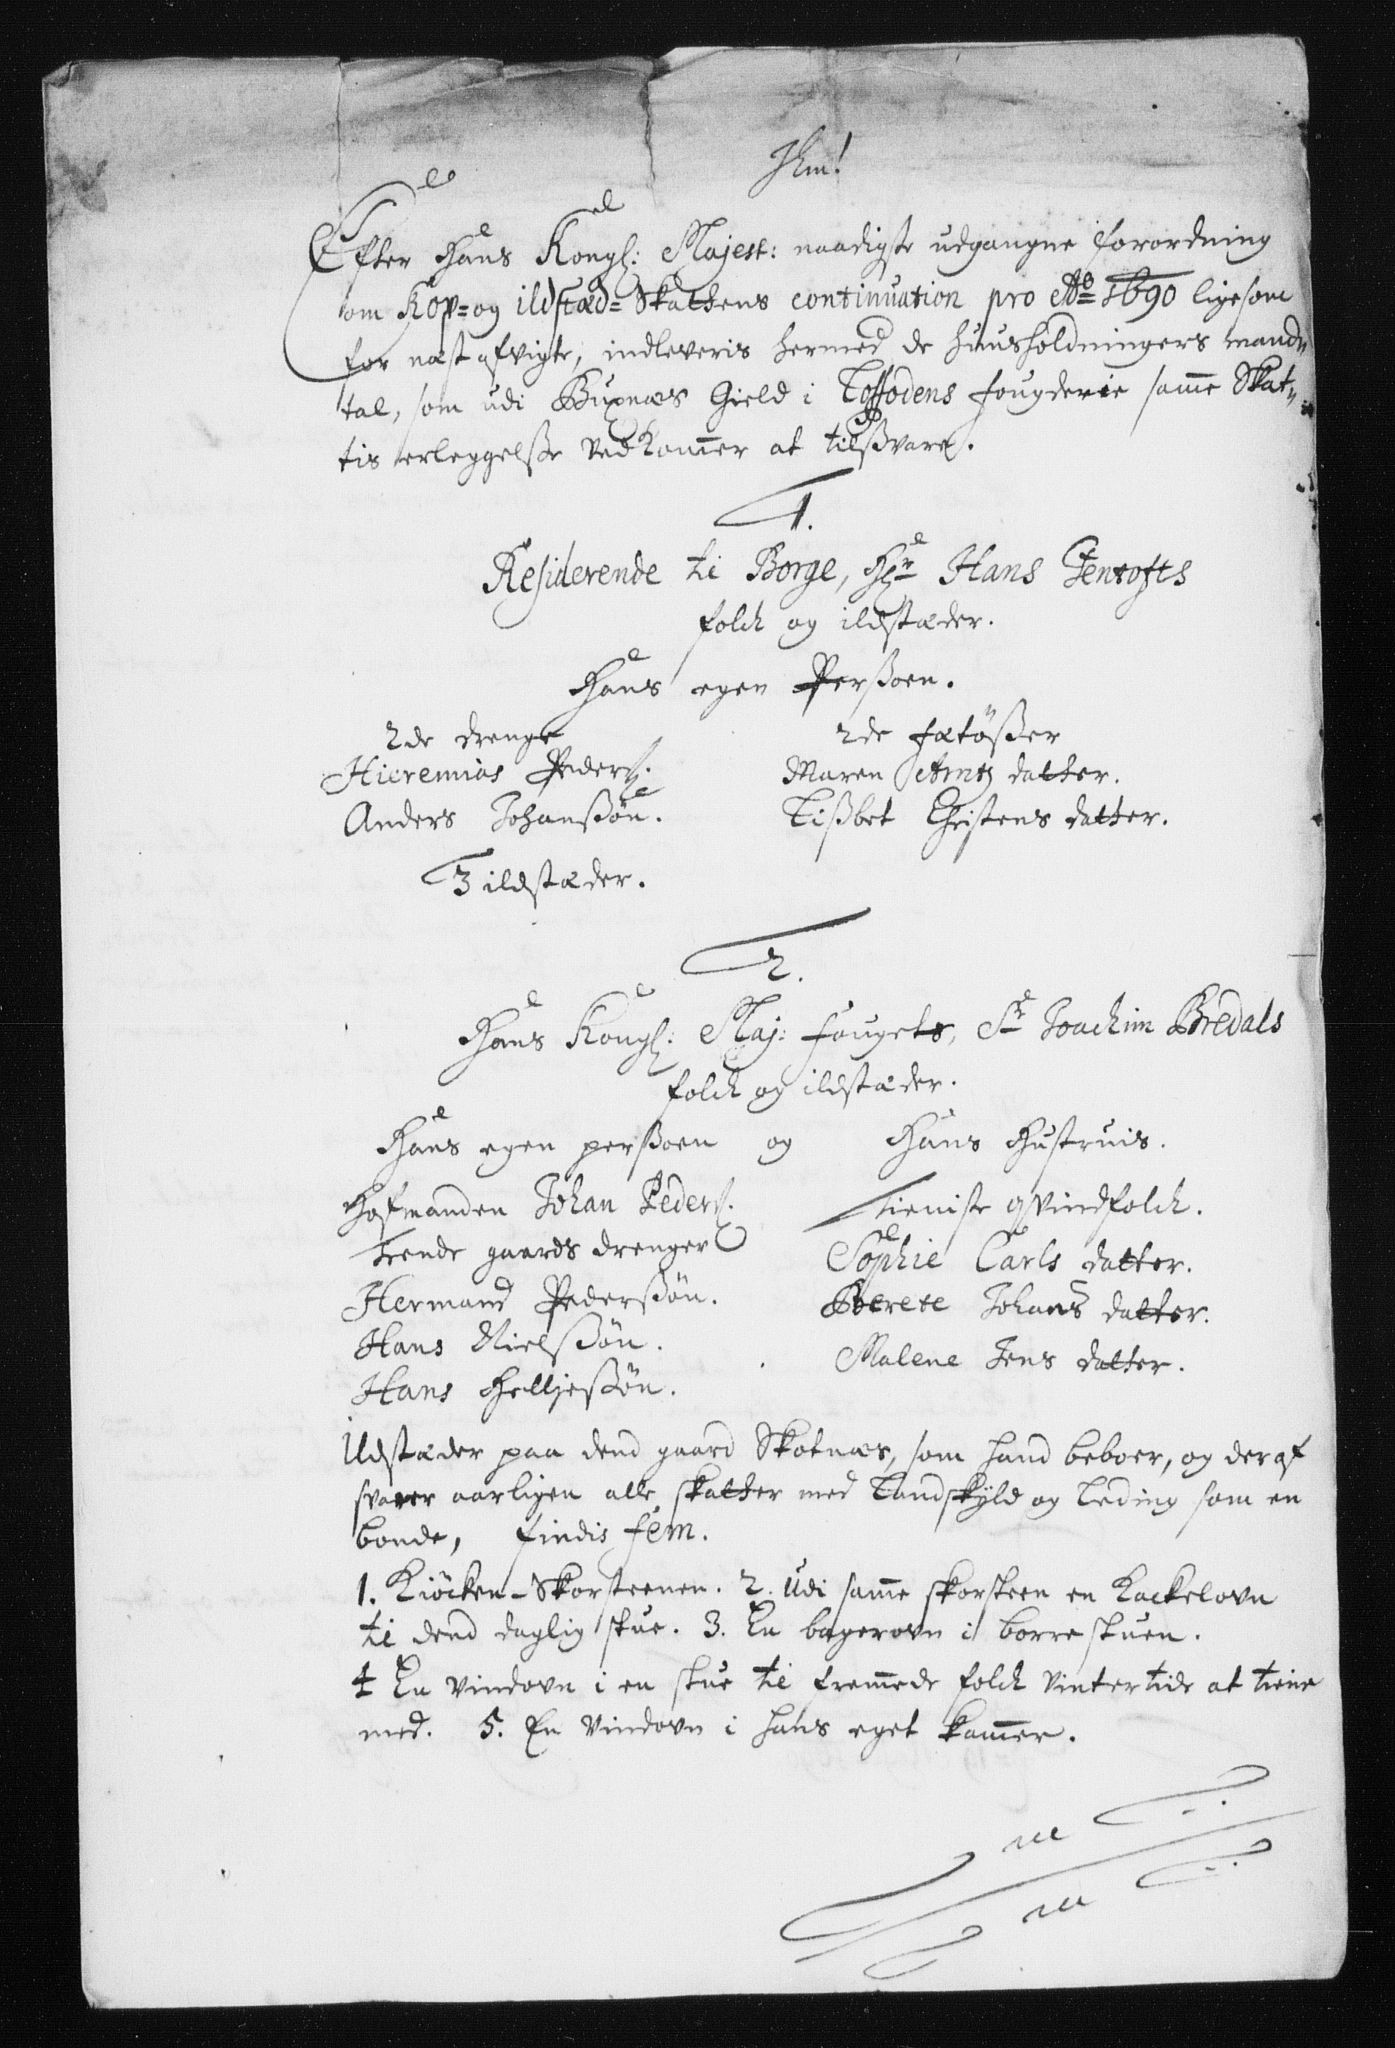 Jhm!
Efter Hans Kongl: Majest: naadigste udgangne forordning
om Kop= og ildstæd= Skattens continuation pro Ao 1690 ligesom
for næst afvigte, indleveris hermed de huusholdningers mand„
tal, som udi Buxnæs Gield i Loffodens fougderie samme Skat„
tis erleggelsse vedkommer at tilssvare.
1.
Residerende til Borge, Hr Hans Gentofts
folck og ildstæder.
Hans egen Perssoen.
2de drenge
Hieremias Peders.
Anders Johanssøn.
3 ildstæder.
2de fætösser
Maren Arntz datter.
Lissbet Christens datter.
2.
Hans Kongl: Maj: fougets, Sr Joachim Bredals
folck og ildstæder.
Hans egen perssoen og Hans Hustruis.
Hofmanden Johan Peders.
Trende gaards drenger
Hermand Pederssøn.
Hans Nielssøn.
Hans Helljessøn.
Tieniste qvindfolck.
Sophie Carls datter.
Berete Johans datter.
Malene Jens datter.
Ildstæder paa dend gaard Skotnæs, som hand beboer, og deraf
svarer aarligen alle skatter med Landskyld og Leding som en
bonde, findis fem.
1. Kiöcken-Skorsteenen. 2. Udi samme skorsteen en Kackelovn
til dend daglig stue. 3. En bagerovn i borrestuen.
4 En vindovn i en stue til fremmede folck vintertide at tiene
med. 5. En vindovn i hans eget kammer.